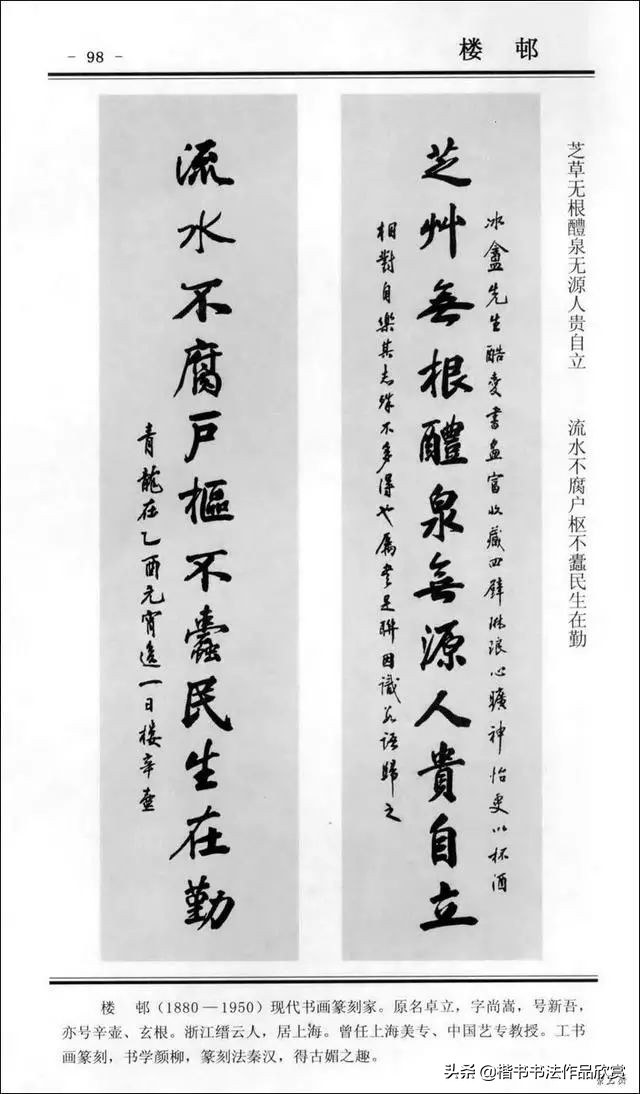 - 98 -
楼 邨
芝草无根醴泉无源人贵自立 流水不腐户枢不蠹民生在勤
冰盦先生酷爱书画富收藏四壁琳琅心旷神怡更以杯酒
芝艸無根醴泉無源人貴自立
相對自樂其志殊不多得也属書是聯因識數語歸之
流水不腐戶樞不蠹民生在勤
青龍在乙酉元宵後一日樓辛壺
楼 邨(1880—1950)现代书画篆刻家。原名卓立,字尚嵩,号新吾,
亦号辛壶、玄根。浙江缙云人,居上海。曾任上海美专、中国艺专教授。工书
画篆刻,书学颜柳,篆刻法秦汉,得古媚之趣。
头条 @楷书书法作品欣赏